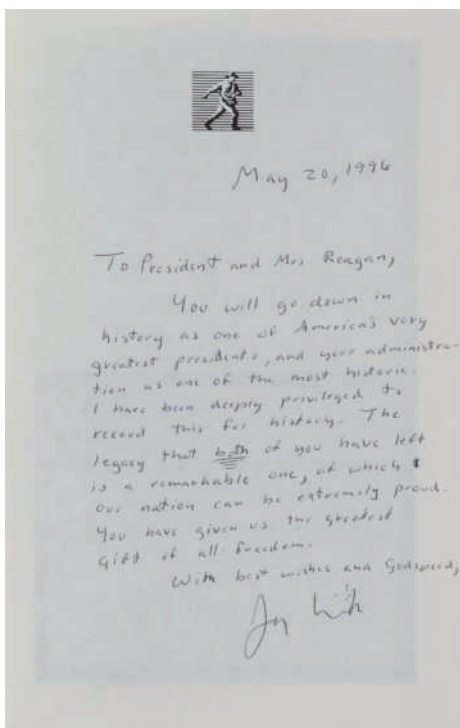 May 20, 1996
To President and Mrs Reagan,
You will go down in
history as one of America's very
greatest presidents, and your administra-
tion as one of the most historic.
I have been deeply privileged to
record this for history. The
legacy that both of you have left
is a remarkable one, of which
our nation can be extremely proud.
You have given us the greatest
Gift of all freedom.
With best wishes and Godspeed,